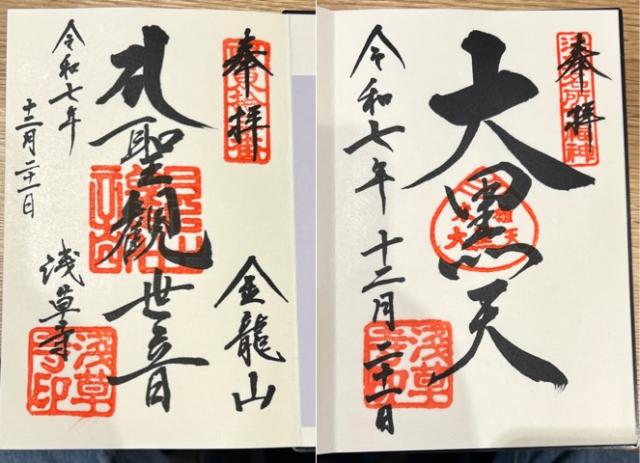 奉拝
聖観世音
金龍山
令和七年
十二月二十一日
浅草寺
淺草
寺印
奉拝
大黒天
令和七年十二月二十一日
淺草
寺印